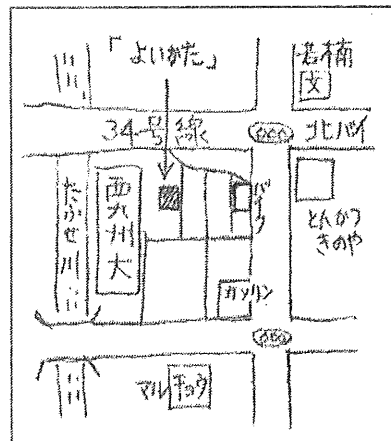 「よいかた」
若楠
文
34号線
北バイ
たふせ川
西九州大
バイク
とんかつ
きのや
ガソリン
マルキョウ